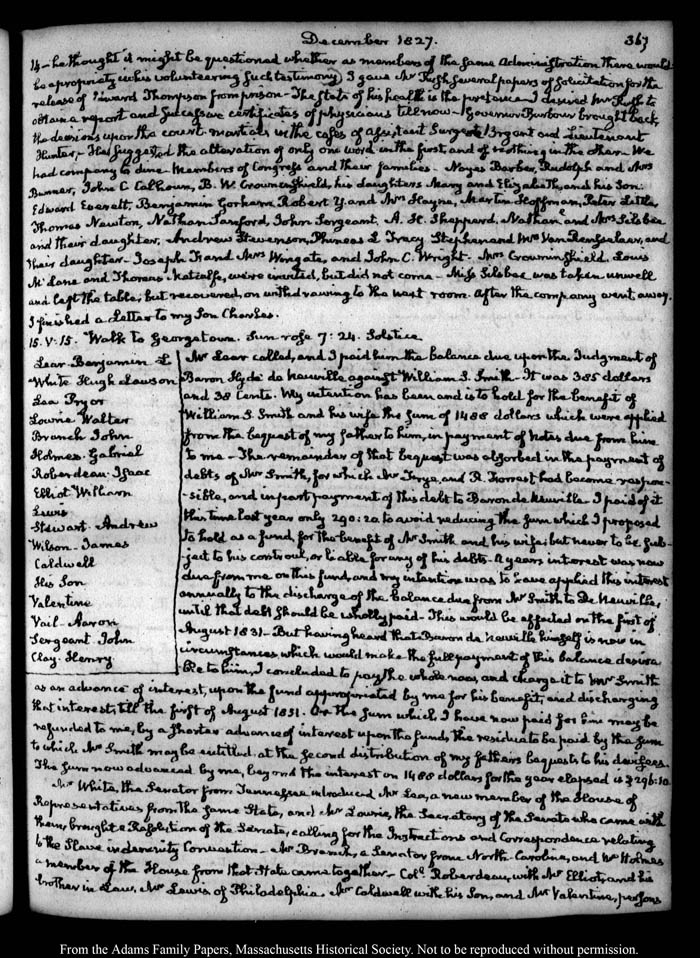 December 1827. 367
14 – he thought it might be questioned whether as members of the same Administration there would
be a propriety in his volunteering such testimony) I gave Mr Rush several papers of solicitation for the
release of Thompson from prison – The state of his health is the pretence – I desired Mr Rush to
obtain a report and successive certificates of physicians till now – Governor Barbour brought back
the decisions upon the court-martials in the cases of assistant Surgeon Bryant and Lieutenant
Hunter, – He suggested the alteration of only one word in the first, and of nothing in the other. We
had company to dine Members of Congress and their families – Noyes Barber, Rudolph and Mrs
Bunner, John C. Calhoun, B. W. Crowninshield, his daughters Mary and Elizabeth, and his Son
Edward Everett, Benjamin Gorham, Robert Y. and Mrs Hayne, Martin Hoffman, Peter Little,
Thomas Newton, Nathan Sanford, John Sergeant, A. H. Sheppard, Nathan and Mrs Silsbee
and their daughter, Andrew Stevenson, Phineas L Tracy Stephen and Mrs Van Rensselaer, and
their daughter – Joseph F and Mrs Wingate, and John C. Wright. Mrs Crowninshield, Louis
McLane and Thomas Metcalfe, were invited, but did not come – Miss Silsbee was taken unwell
and left the table; but recovered, on withdrawing to the next room. After the company went away.
I finished a Letter to my Son Charles.
15. V:15. Walk to Georgetown. Sun rose 7:24. Solstice
Lear Benjamin L
White Hugh Lawson
Lea Pryor
Lowrie Walter
Branch John
Holmes Gabriel
Roberdeau Isaac
Elliot William
Lewis
Stewart Andrew
Wilson James
Caldwell
His Son
Valentine
Vail Aaron
Sergeant John
Clay Henry
Mr Lear called, and I paid him the balance due upon the Judgment of
Baron Hyde de Neuville against William S. Smith – It was 385 dollars
and 38 Cents. My intention has been and is to hold for the benefit of
William S. Smith and his wife the sum of 1488 dollars which were applied
from the bequest of my father to him, in payment of Notes due from him
to me – The remainder of that bequest was absorbed in the payment of
debts of Mr Smith, for which Mr Frye, and R. Forrest had become respon-
-sible, and in part payment of this debt to Baron de Neuville. I paid of it
this time last year only 290:20 to avoid reducing the sum which I proposed
to hold as a fund, for the benefit of Mr Smith and his wife; but never to be sub-
ject to his controul, or liable for any of his debts. A years interest was now
due from me on this fund, and my intention was to have applied this interest
annually to the discharge of the balance due from Mr Smith to De Neuville,
until that debt should be wholly paid – This would be effected on the first of
August 1831 – But having heard that Baron de Neuville himself is now in
circumstances which would make the full payment of this balance desira
ble to him, I concluded to pay the whole now, and charge it to Mr Smith
as an advance of interest, upon the fund appropriated by me for his benefit, and discharging
that interest, till the first of August 1831. Or the sum which I have now paid for him may be
refunded to me, by a shorter advance of interest upon the fund, the residue to be paid by the sum
to which Mr Smith may be entitled at the second distribution of my fathers bequests to his devisees.
The sum now advanced by me, beyond the interest on 1488 dollars for the year elapsed is $ 296:10
Mr White, the Senator from Tennessee introduced Mr Lea, a new member of the House of
Representatives from the same State, and Mr Lowrie, the Secretary of the Senate who came with
them, brought a Resolution of the Senate, calling for the Instructions and Correspondence relating
to the Slave indemnity Convention – Mr Branch, a Senator from North-Carolina, and Mr Holmes
a member of the House from that State came together – Coll. Roberdeau, with Mr Elliot, and his
brother in Law, Mr Lewis of Philadelphia. Mr Caldwell with his Son, and Mr Valentine, persons
From the Adams Family Papers, Massachusetts Historical Society. Not to be reproduced without permission.